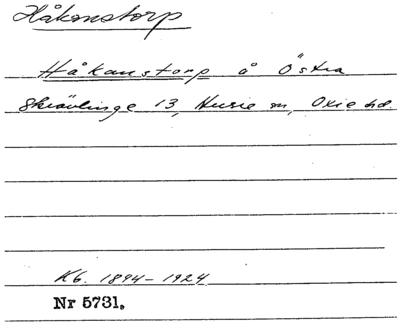 Håkanstorp
Håkanstorp å Östra
Skrävlinge 13, Husie sn, Oxie hd
Kb. 1894-1924
Nr 5731.